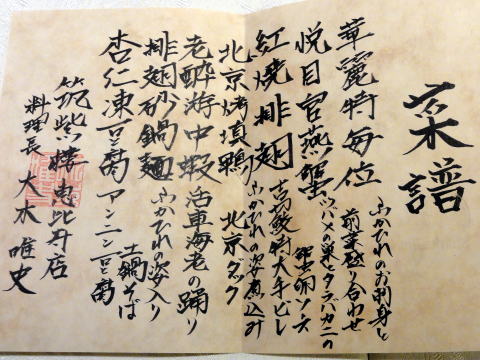 菜譜
華麗特毎位
ふかひれのお刺身と
前菜盛り合わせ
悦目官燕蟹
ツバメの巣とタラバカニの
蟹卵ソース
紅焼排翅
吉切鮫特大手ビレ
ふかひれの姿煮込み
北京烤填鴨 北京ダック
老酔游中蝦 活車海老の踊り
排翅砂鍋麺
ふかひれの姿入り
土鍋そば
杏仁凍豆腐 アンニン豆腐
筑紫樓恵比寿店
料理長 大木唯史